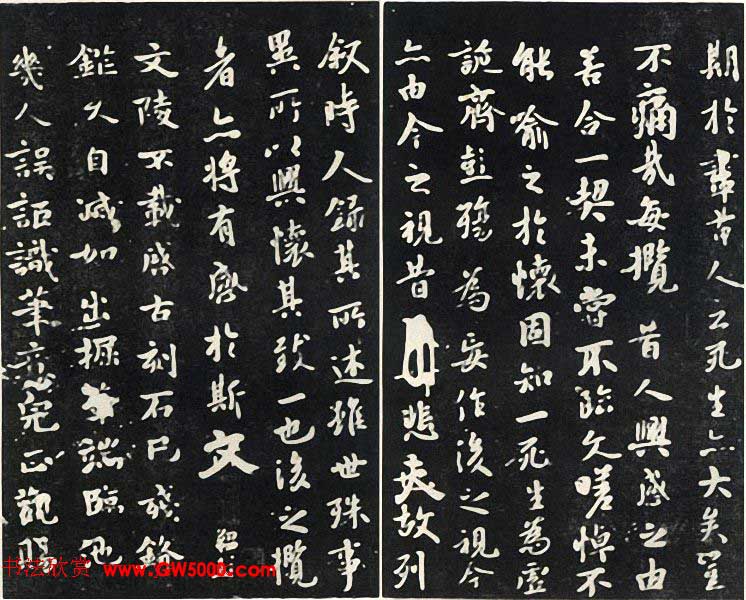 期於盡昔人云死生亦大矣豈
不痛哉每攬昔人興感之由
若合一契未嘗不臨文嗟悼不
能喻之於懷固知一死生為虛
誕齊彭殤為妄作後之視今
亦由今之視昔悲夫故列
叙時人錄其所述雖世殊事
異所以興懷其致一也後之攬
者亦將有感於斯文
文陵不載感古刻石已殘
自滅如出筆端臨池
幾人誤識筆意宛正觀
书法欣赏 www.GW5000.com